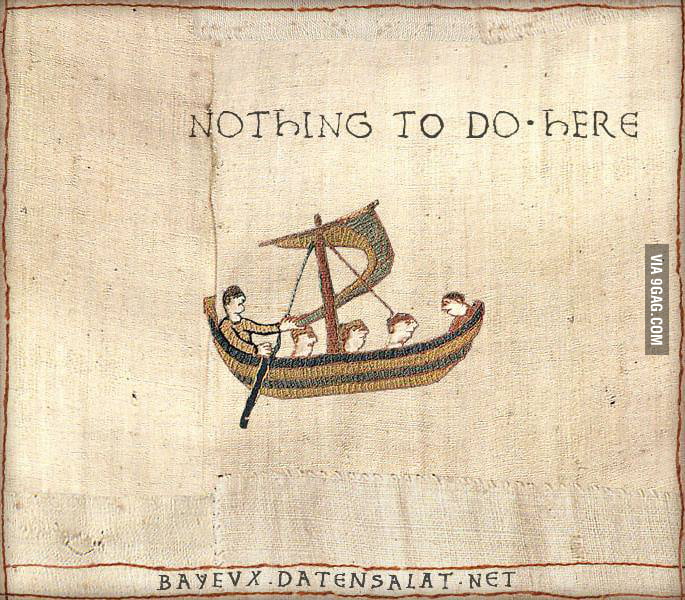 NOTHING TO DO·HERE
VIA 9GAG.COM
BAYEVX·DATENSALAT·NET